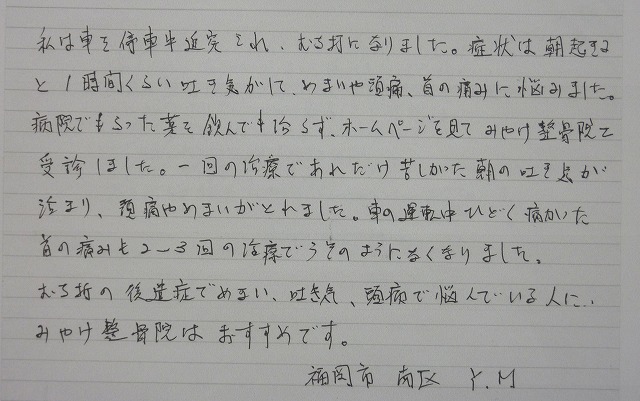 私は車を停車中追突され、むち打になりました。症状は朝起きる
と1時間くらい吐き気がして、めまいや頭痛、首の痛みに悩みました。
病院でもらった薬を飲んでも治らず、ホームページを見てみやけ整骨院を
受診しました。一回の治療であれだけ苦しかった朝の吐き気が
治まり、頭痛やめまいがとれました。車の運転中ひどく痛かった
首の痛みも2〜3回の治療でうそのようになくなりました。
むち打の後遺症でめまい、吐き気、頭痛で悩んでいる人に、
みやけ整骨院はおすすめです。
福岡市 南区 Y.M